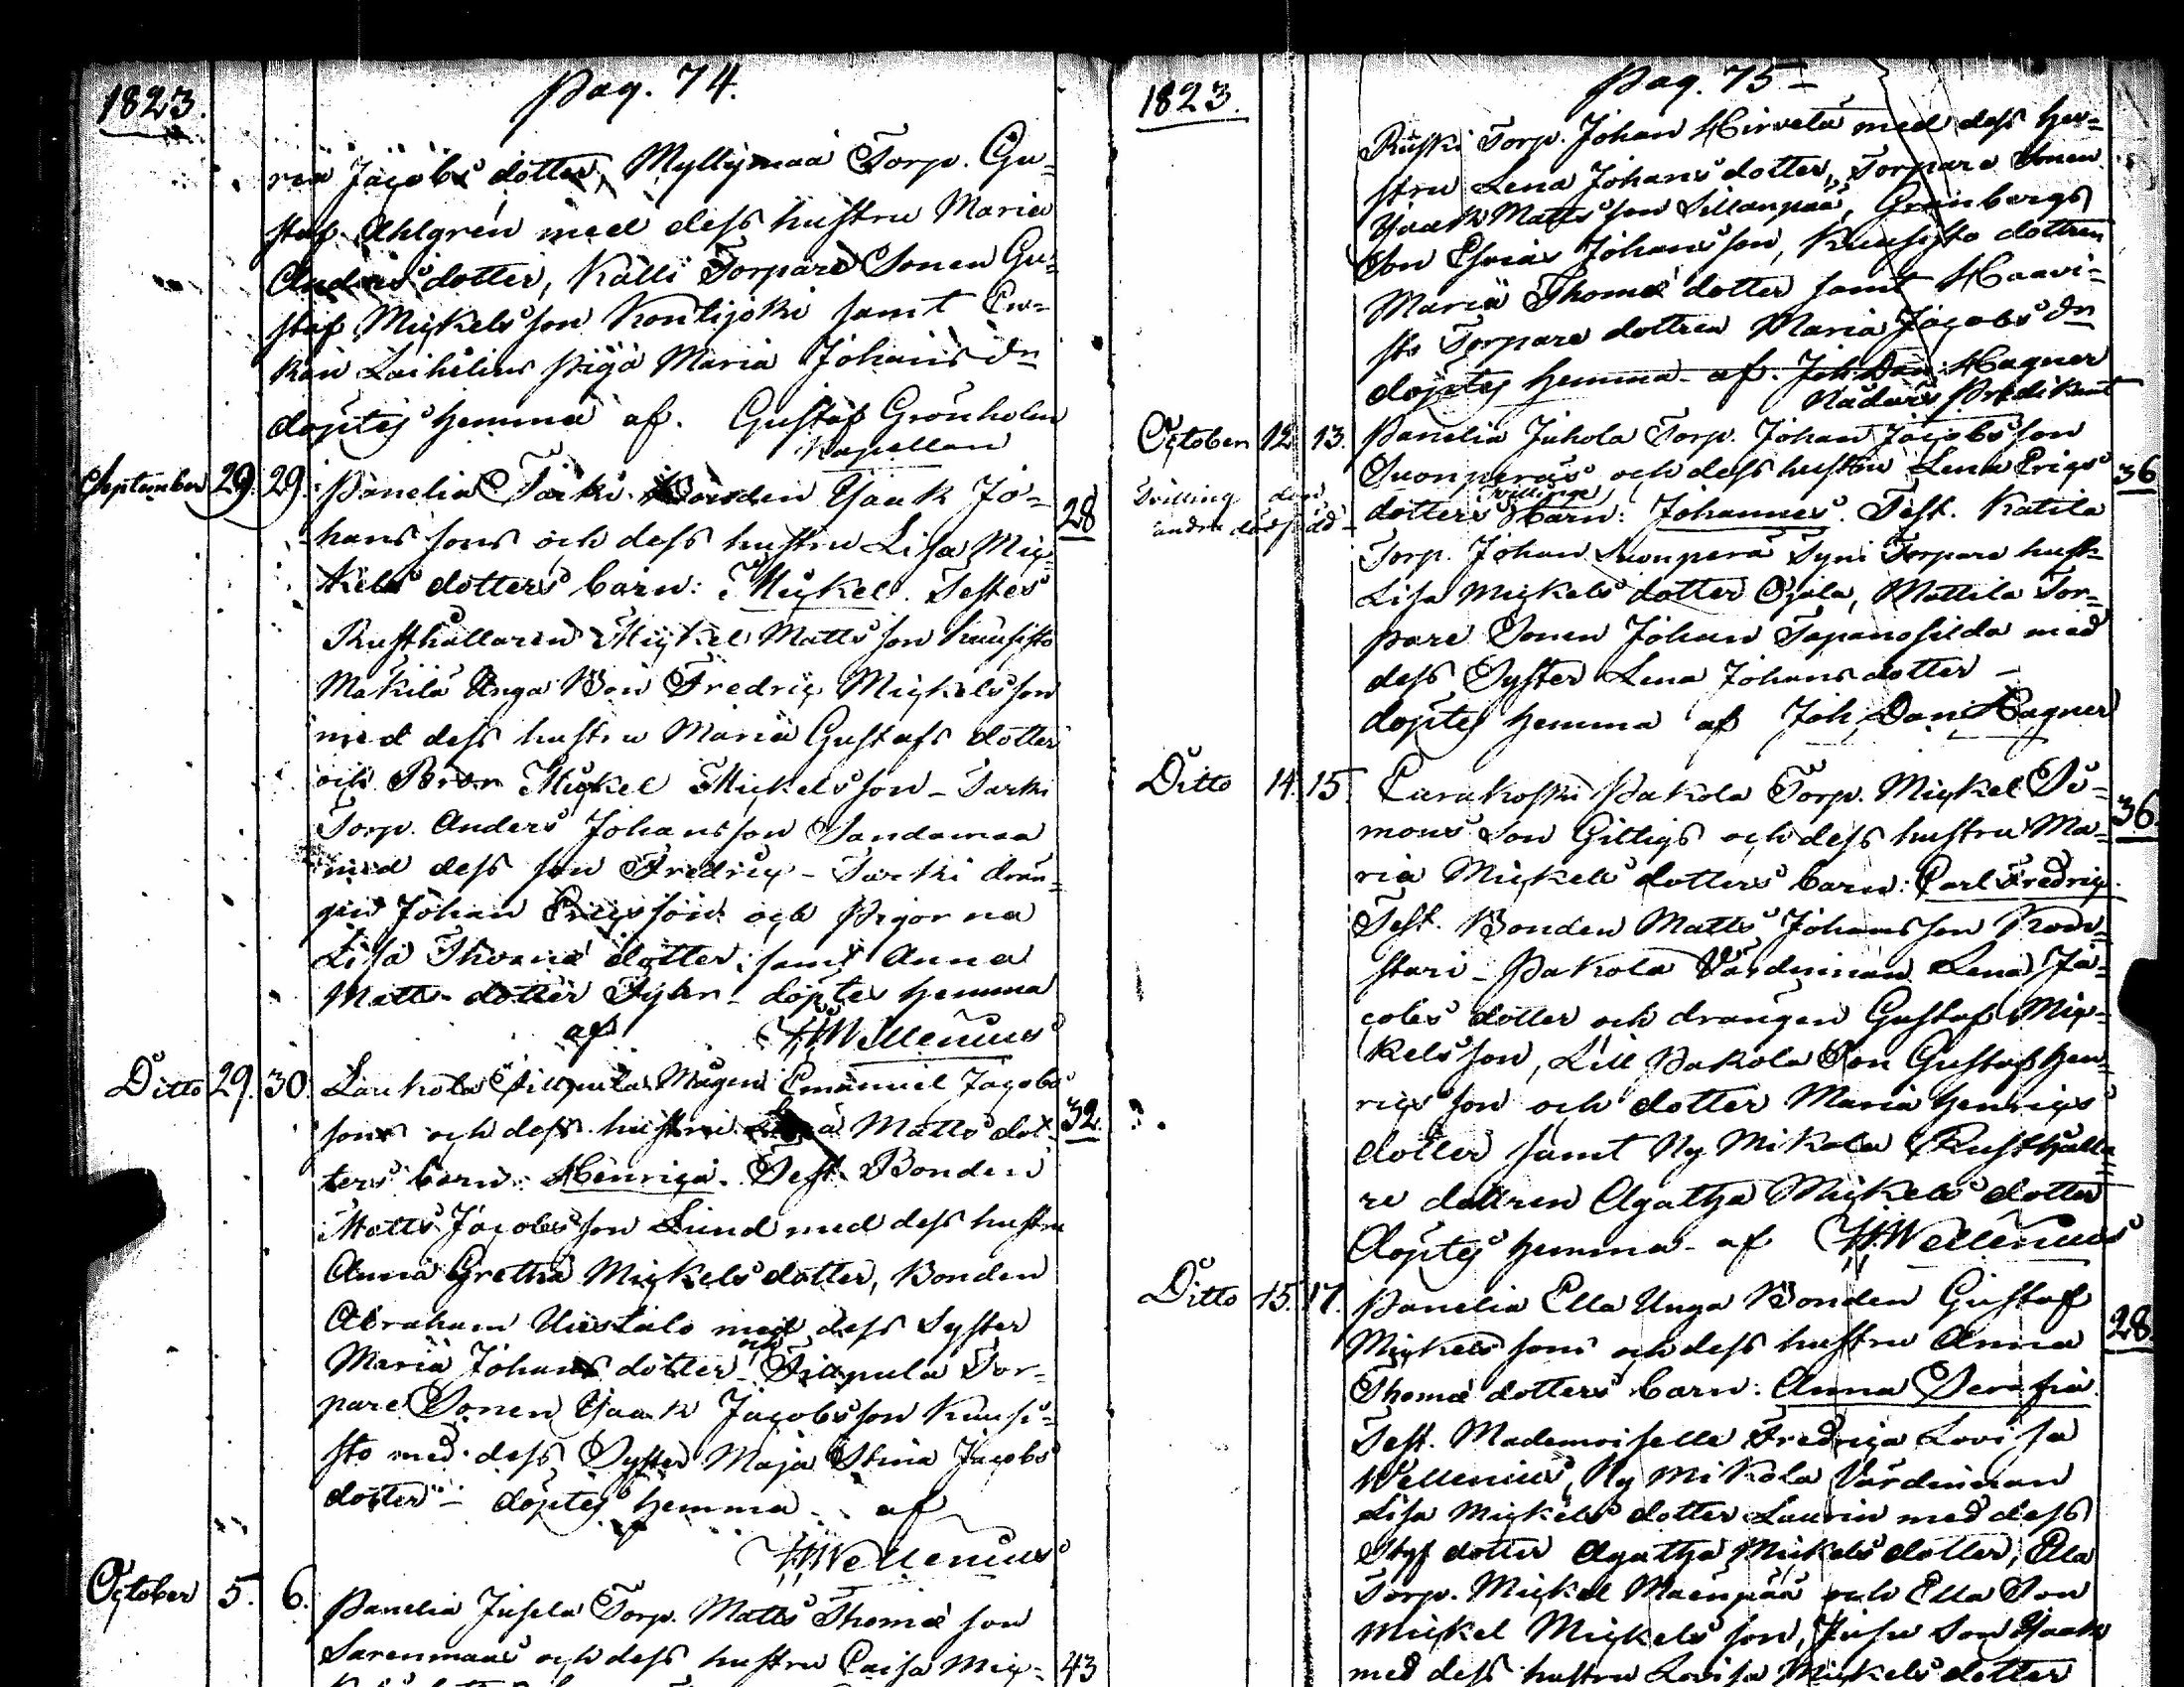 1823.
Pag. 74.
ria Jacobs dotter, Myllymaa Torp. Gu-
staf Ahlgren med dess hustru Maria
Anders dotter, Källi Torpare Sonen Gu-
staf Mickels son Kontijoki samt En-
kan Laihelius piga Maria Johans dr
döptes hemma af. Gustaf Grönholm
Kapellan
September 29. 29. Panelia Tarki Bonden Isaak Jo- 28
hans sons och dess hustru Lisa Mic-
kels dotters barn: Mickel. Testes
Rusthållaren Mickel Matts son Kuusisto
Mäkilä Unga Bon Fredric Mickels son
med dess hustru Maria Gustafs dotter
och Bror Mickel Mickels son - Tarki
Torp. Anders Johans son Sandamaa
med dess son Fredric - Tarki drän-
gen Johan Erics son och Pigorna
Lisa Thomæ dotter samt Anna
Matts dotter - döptes hemma
af HWellenius
Ditto 29. 30. Laukola Sillpula Mågen Emanuel Jacobs
sons och dess hustru Matts dot- 32.
ters barn: Henrica. Test. Bonden
Matts Jacobs son Lund med dess hustru
Anna Gretha Mickels dotter, Bonden
Abraham Uusitalo med dess Syster
Maria Johans dotter och Sillpula Tor-
pare Sonen Isaak Jacobs son Kuusi-
sto med dess Syster Maja Stina Jacobs
dotter - döptes hemma af
HWellenius
October 5. 6. Panelia Jusela Torp. Matts Thomæ son
Sarenmaas och dess hustru Caisa Mic- 43
1823.
Pag. 75
Ruski Torp. Johan Hirvelä med dess hu-
stru Lena Johans dotter, Torpare Sonen
Isaak Matts son Sillanpää, Grönbergs
Son Esaias Johans son, Kuusisto dottren
Maria Thomæ dotter samt Haavi-
sto Torpare dottren Maria Jacobs dr
döptes hemma af. Joh. Dan. Hagner
Nådårs Predikant
October 12 13. Panelia Juhola Torp. Johan Jacobs son
Suonperäs och dess hustru Lena Erics 36
Tvilling den dotters Tvillinge Barn: Johannes. Test. Katila
andra dödfödd
Torp. Johan Suonperä Syni Torpare hust.
Lisa Mickels dotter Ojala, Mattila Tor-
pare Sonen Johan Tapanosilda med
dess Syster Lena Johans dotter -
döptes hemma af Joh. Dan. Hagner
Ditto 14. 15. Eurakoski Pakola Torp. Mickel Si-
mons Son Gilligs och dess hustru Ma- 36.
ria Mickels dotters barn: Carl Fredric.
Test. Bonden Matts Johans son
stari - Pakola Värdinnan Lena Ja-
cobs dotter och drängen Gustaf Mic-
kels son, Lill Pakola Son Gustaf Hen-
rics son och dotter Maria Henrics
dotter samt Ny Mikola Rusthålla-
re dottren Agatha Mickels dotter
döptes hemma - af HWellenius
Ditto 15. 17. Panelia Ella Unga Bonden Gustaf
Mickels sons och dess hustru Anna 28.
Thomæ dotters barn: Anna Serafia.
Test. Mademoiselle Fredrica Lovisa
Wellenius, Ny Mikola Värdinnan
Lisa Mickels dotter Laurin med dess
Styf dotter Agatha Mickels dotter, Ella
Torp. Mickel Maenpää och Ella Son
Mickel Mickels son, Juse Son Isaak
med dess hustru Lovisa Mickels dotter